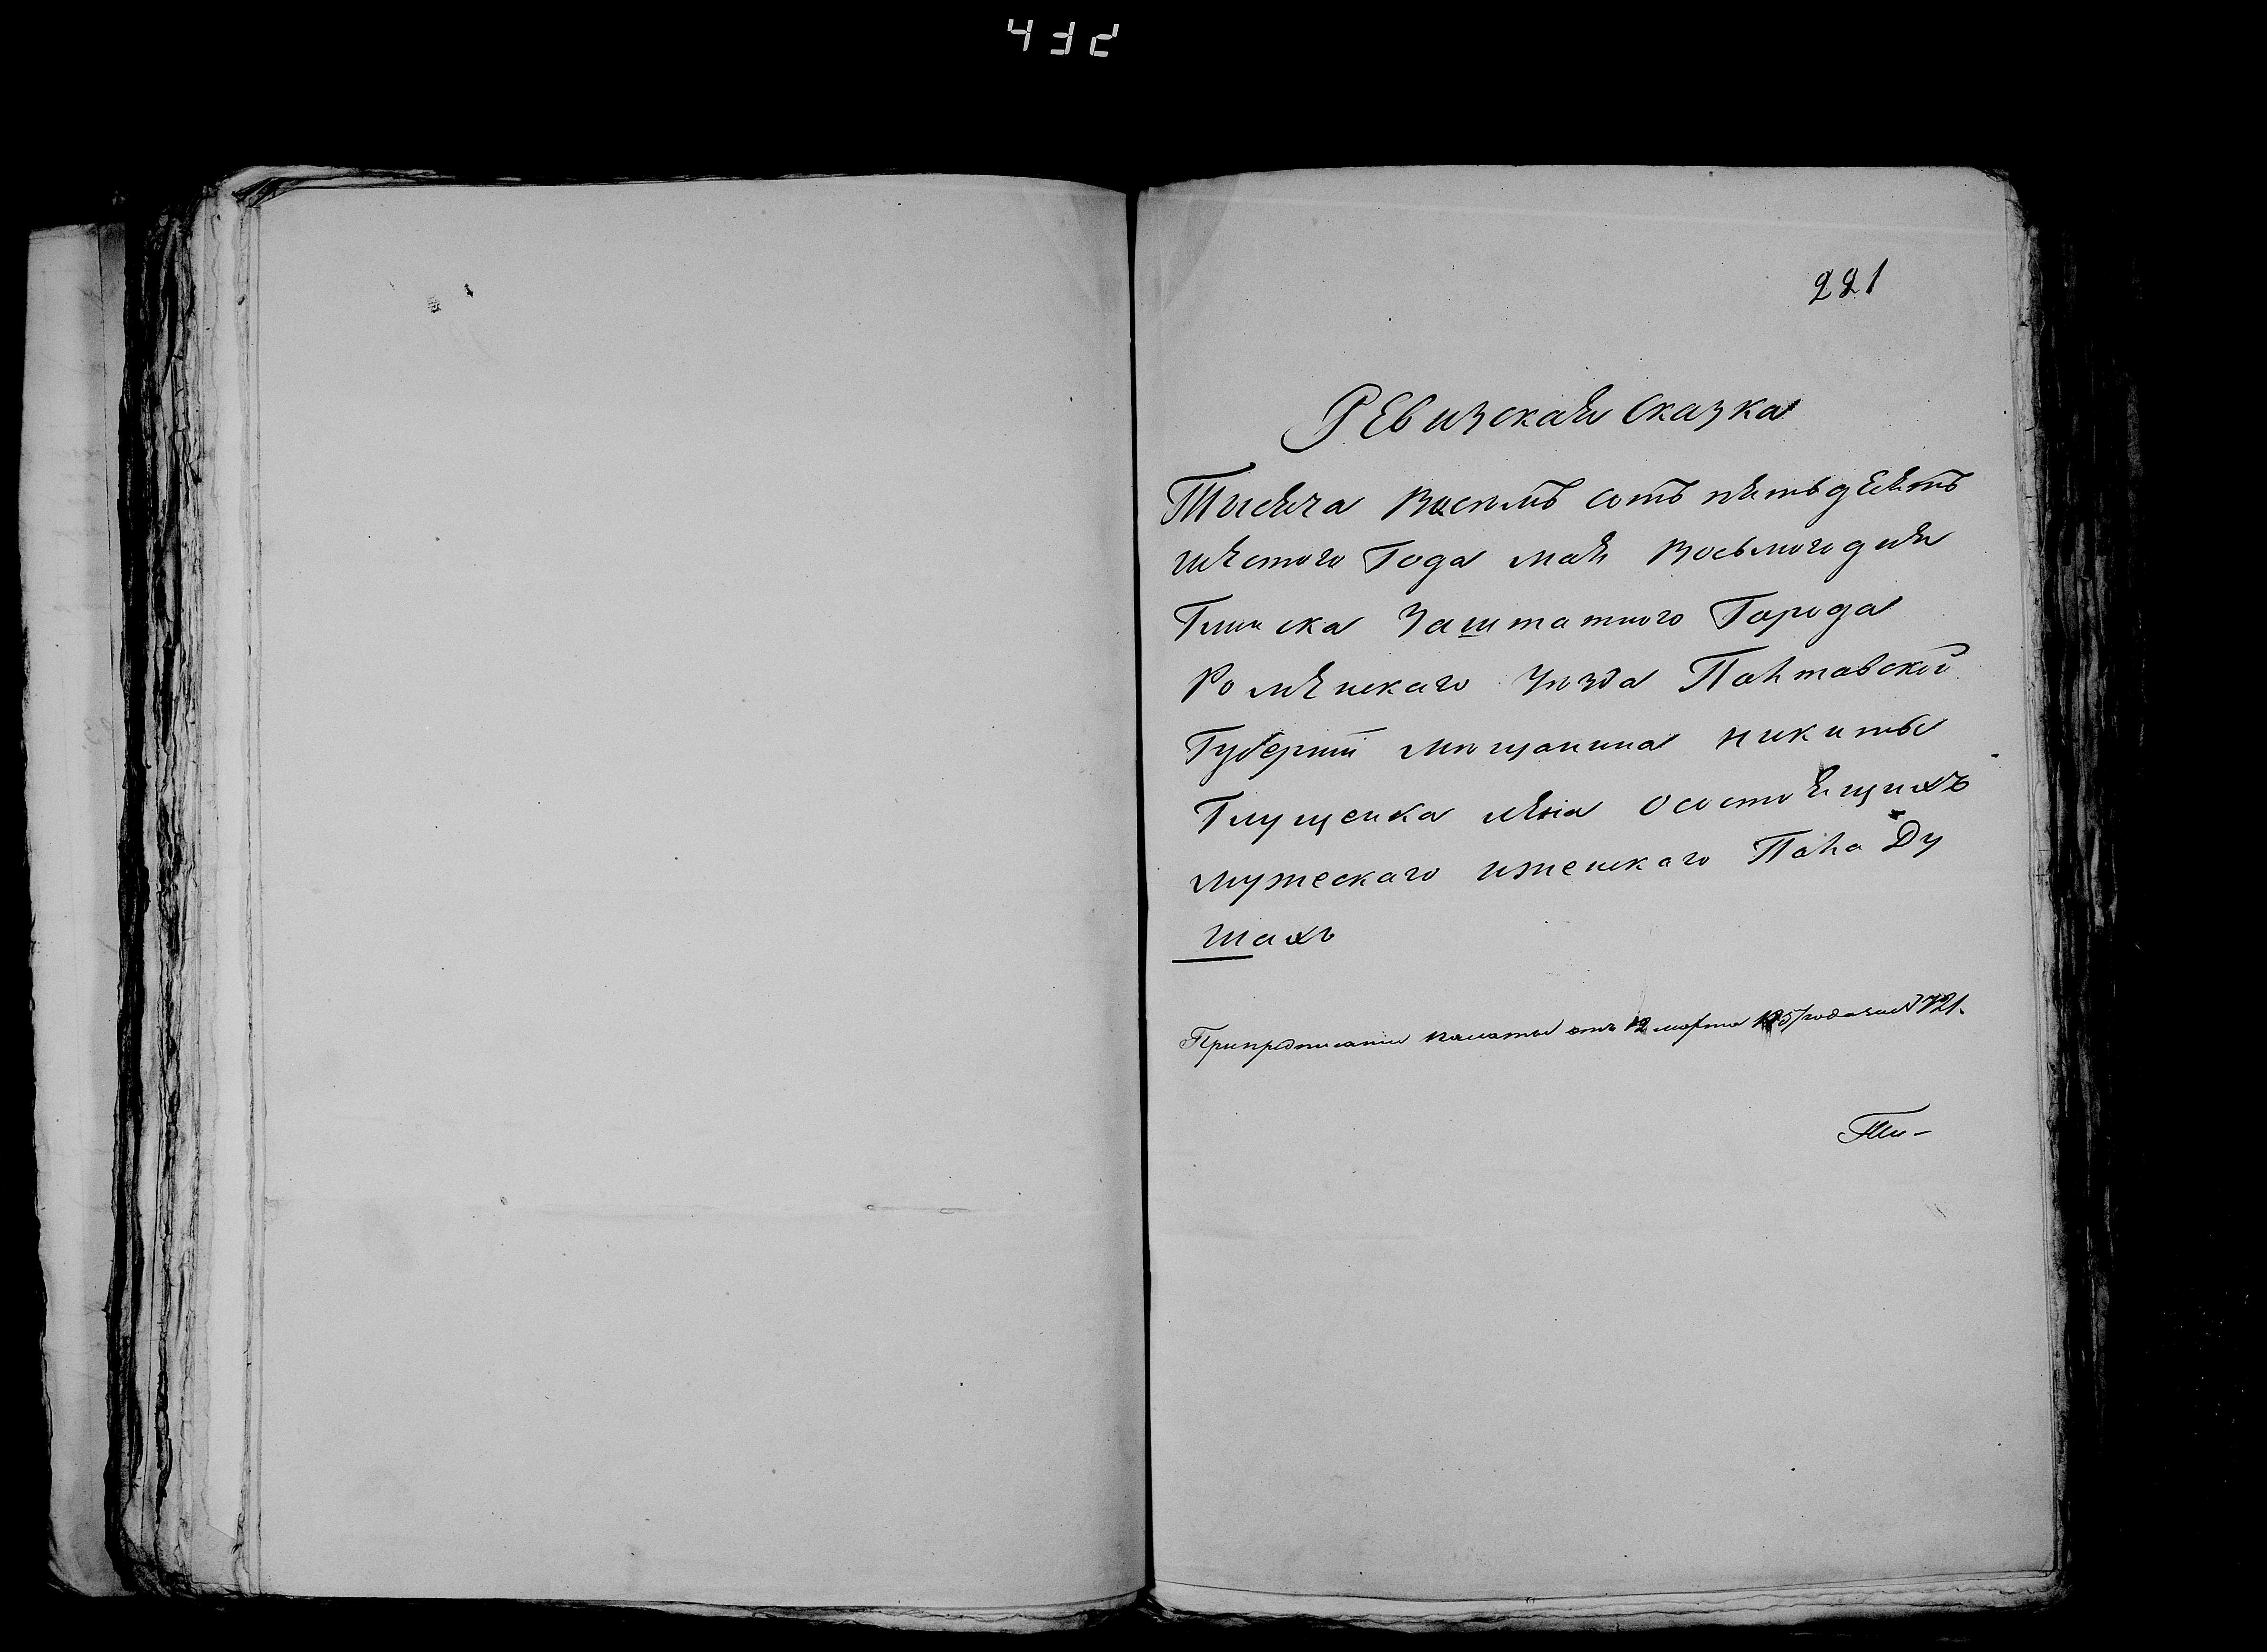 432
221
Ревизская сказка
Тысяча Восемъ сотъ пятьдесятъ
шестого Года мая Восьмого дня
Глинска Заштатного Города
Роменскаго Уѣзда Полтавской
Губернiи мѣщанина никиты
Глущенка осостоящихъ
мужескаго иженскаго Пола Ду
шахъ
Припредписанiи палаты отъ 12 марта 1857 года за № 721.